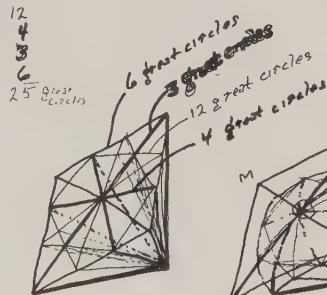 12
4
3
6
25 great circles
6 great circles
3 great circles
12 great circles
4 great circles
M